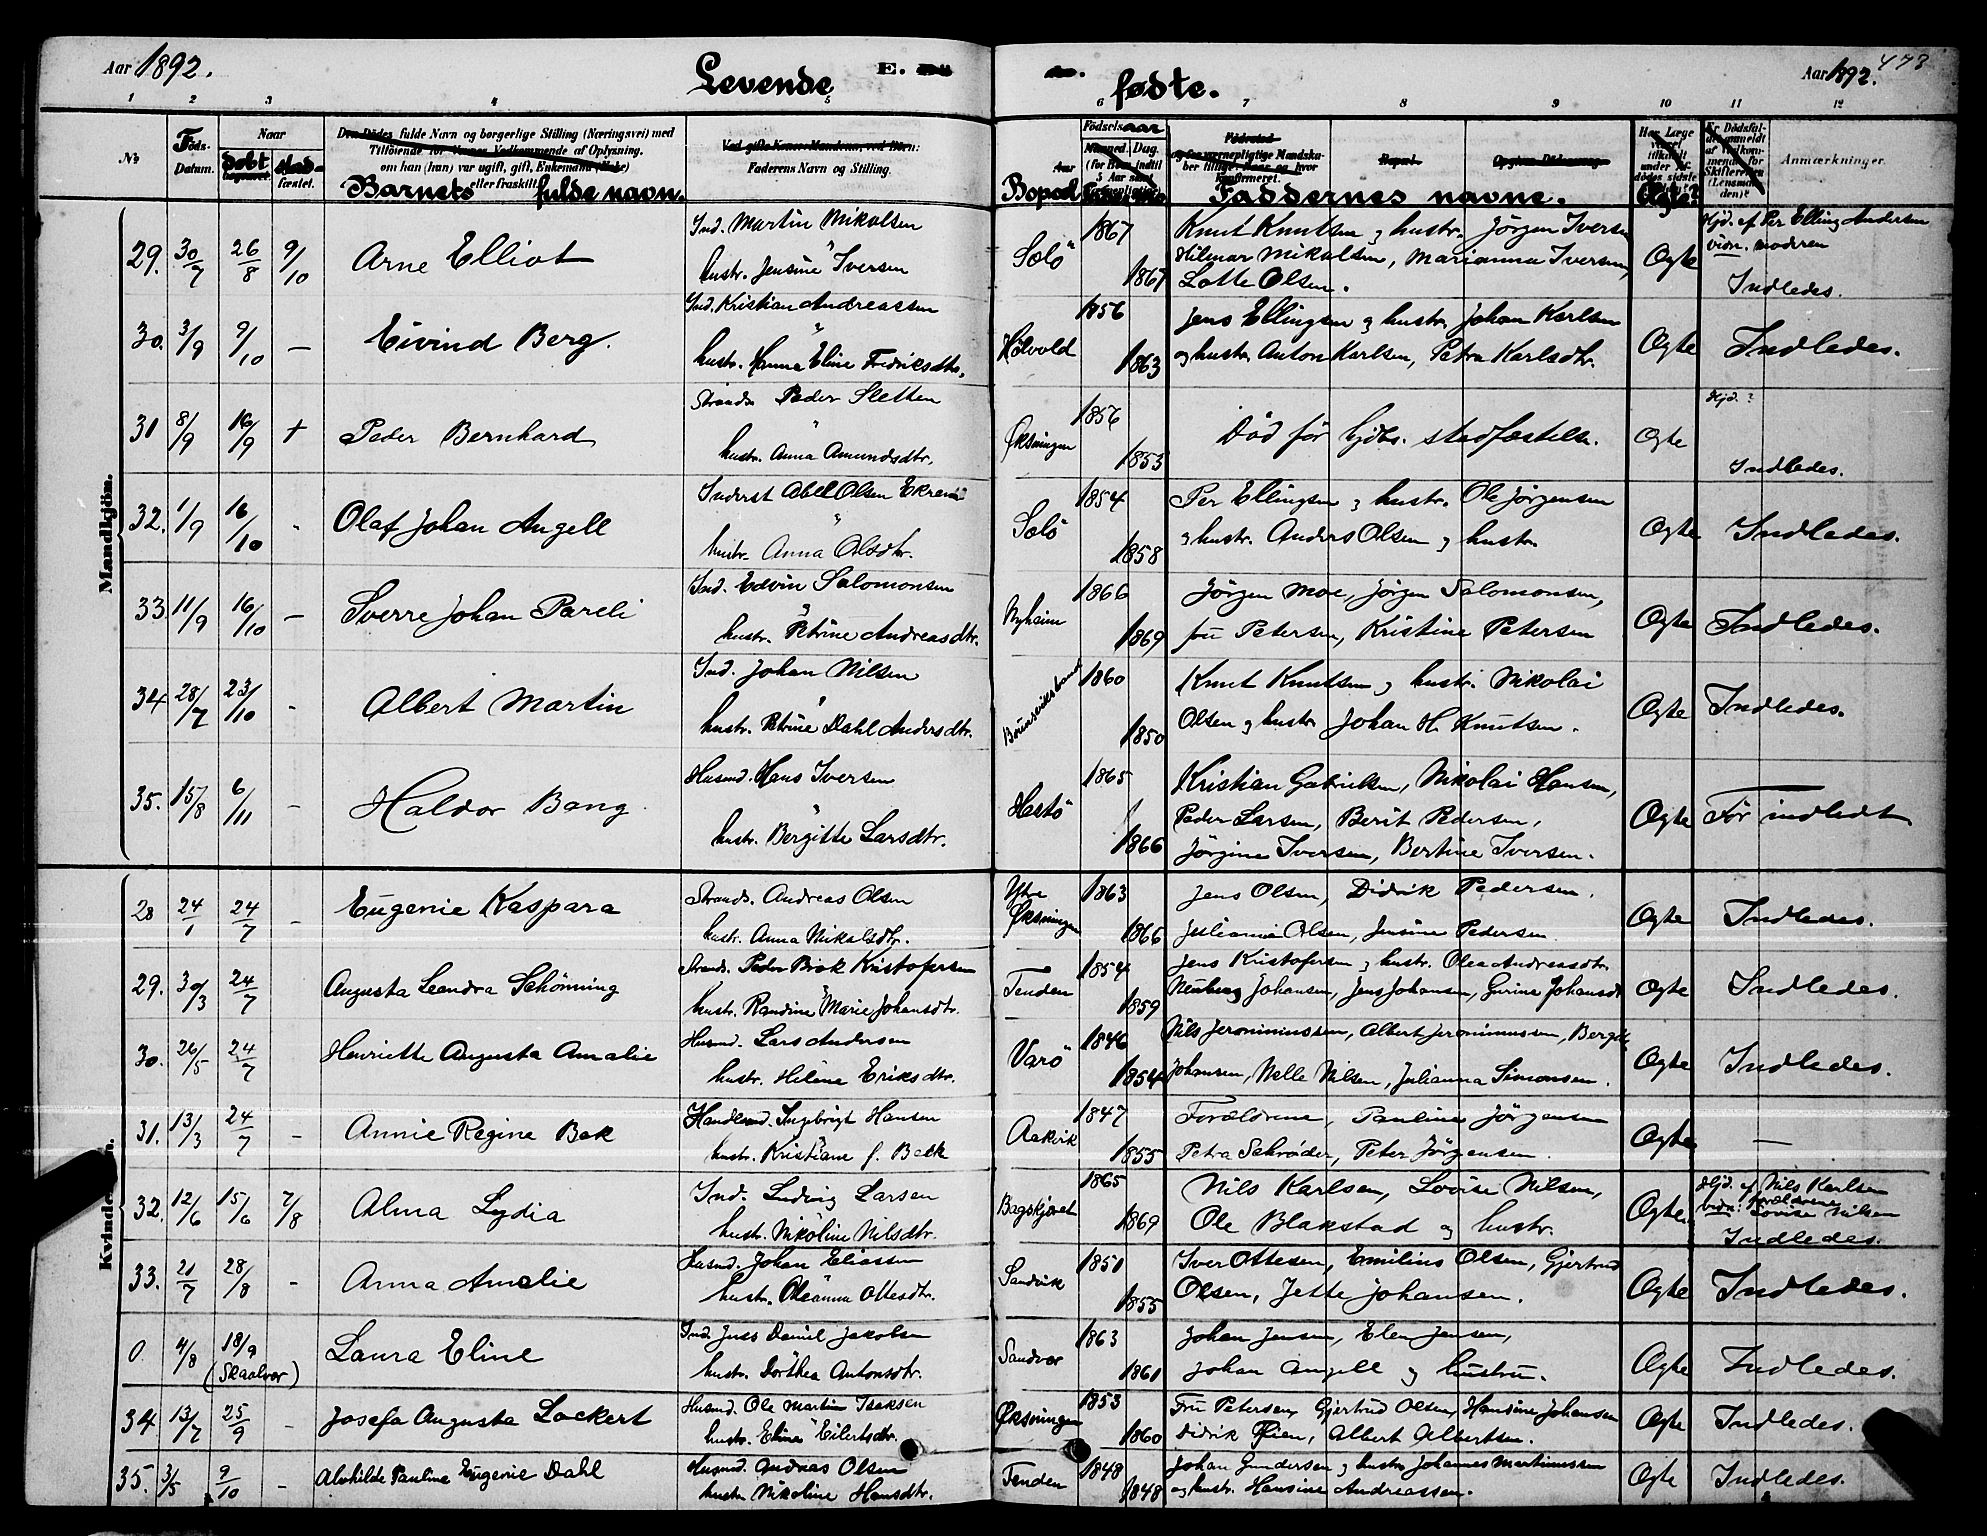 Aar 1892.
Levende
E.
fødte.
Aar 1892.
473
1 2 3 4 5 6 7 8 9 10 11 12
No. Føds-Datum. Naar døbt stadfæstet.
Barnets fulde navn.
Faderens Navn og Stilling.
Bopæl
Fødselsaar
Faddernes navne.
Ægte?
Anmærkninger.
Mandkjön.
29. 30/7 26/8 9/10 Arne Elliot Ind. Martin Mikalsen Solö 1867 Knut Knutsen og hustr. Jörgen Iversen Ægte Hjd. af Per Elling Andersen
hustr. Jensine Iversen 1867 Hilmar Mikalsen, Marianna Iversen, vidn. modren
Lotte Olsen. Indledes.
30. 3/9 9/10 — Eivind Berg. Ind. Kristian Andreassen Holvold 1856 Jens Ellingsen og hustr. Johan Karlsen Ægte Indledes.
hustr. Hanna Eline Fredriksdtr. 1863 og hustr. Anton Karlsen, Petra Karlsdtr.
31 8/9 16/9 + Peder Bernhard Strands. Peder Sletten Øksningen 1856 Død før hjdb. stadfæstelse. Ægte Hjd. ?
hustr. Anna Amundsdtr. 1853 Indledes.
32. 1/9 16/10 - Olaf Johan Angell Inderst Abel Olsen Solö 1854 Per Ellingsen og hustr. Ole Jörgensen Ægte Indledes.
hustr. Anna Olsdtr. 1858 og hustr. Anders Olsen og hustr.
33 11/9 16/10 — Sverre Johan Pareli Ind. Edvin Salomonsen Nyheim 1866 Jörgen Moe, Jörgen Salomonsen, Ægte Indledes.
hustr. Petrine Andreasdtr. 1869 fru Petersen, Kristine Petersen
34 28/7 23/10 - Albert Martin Ind. Johan Nilsen 1860 Knut Knutsen og hustr. Nikolai Ægte Indledes.
hustr. Petrine Dahl Andersdtr. 1850 Olsen og hustr. Johan H. Knutsen.
35. 15/8 6/11 - Haldor Bang. Husmd. Hans Iversen Hestö 1865 Kristian Gabrielsen, Nikolai Hansen, Ægte Før indledt
hustr. Bergitte Larsdtr. 1866 Peder Larsen, Berit Pedersen,
Jörgine Iversen, Bertine Iversen.
28 24/1 24/7 - Eugenie Kaspara Strands. Andreas Olsen Ytre Øksningen 1863 Jens Olsen, Didrik Pedersen. Ægte Indledes.
hustr. Anna Nikolsdtr. 1866 Julianna Olsen, Jensine Pedersen.
29. 30/3 24/7 Augusta Leandra Schönning Strands. Peder Brok Kristofersen Tenden 1854 Jens Kristofersen og hustr. Olea Andreasdtr. Ægte Indledes.
hustr. Randine Marie Johansdtr. 1859 Johansen, Jens Johansen, Gurine Johansdt
30. 26/5 24/7 Henriette Augusta Amalie Husmd. Lars Andersen Varö 1846 Nils Jeronimussen, Albert Jeronimussen, Ægte Indledes.
hustr. Helene Eriksdtr. 1854 Johansen, Nelle Nilsen, Julianna Simonsen.
31. 13/3 24/7 - Annie Regine Bek Handlsmd. Ingebrigt Hansen Aakvik 1847 Forældrene, Pauline Jörgensen Ægte —
hustr. Kristiane f. Bekk 1855 Petra Schröder, Peter Jörgensen.
32. 12/6 15/6 7/8 Alma Lydia Ind. Ludvig Larsen 1865 Nils Karlsen, Lovise Nilsen, Ægte. Hjd. af Nils Karlsen
hustr. Nikoline Nilsdtr. 1869 Ole Blakstad og hustr. vidn: forældrene Lovise Nilsen
Indledes.
33. 21/7 28/8 - Anna Amalie Husmd. Johan Eliassen Sandvik 1851 Iver Ottesen, Emilius Olsen, Gjertrud Ægte Indledes.
hustr. Oleanna Ottesdtr. 1855 Olsen, Jette Johansen.
0. 4/8 18/9 (Skaalvær) Laura Eline Ind. Jens Daniel Jakobsen Sandvær 1863 Johan Jensen, Elen Jensen, Ægte Indledes.
hustr. Dorthea Antonsdtr. 1861 Johan Angell og hustru.
34 13/7 25/9 - Josefa Augusta Lockert Husmd. Ole Martin Isaksen Øksningen 1853 Fru Petersen, Gjertrud Olsen, Hansine Johansen Ægte Indledes.
hustr. Eline Eilertsdtr. 1860 Didrik Øien, Albert Albertsen.
35. 3/5 9/10 - Alvhilde Pauline Eugenie Dahl Husmd. Andreas Olsen Tenden 1848 Johan Gundersen og hustr. Johannes Martinussen Ægte Indledes.
hustr. Nikoline Hansdtr. 1848 og hustr. Hansine Andreassen.